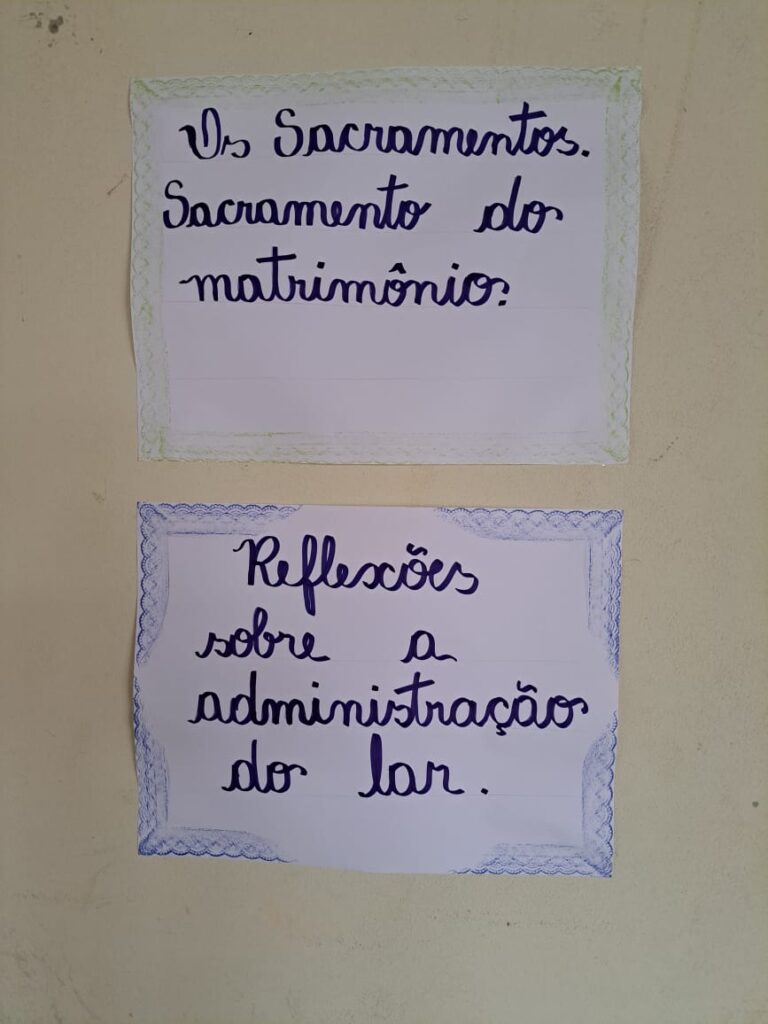 Os Sacramentos.
Sacramento do
matrimônio.
Reflexões
sobre a
administração
do lar.